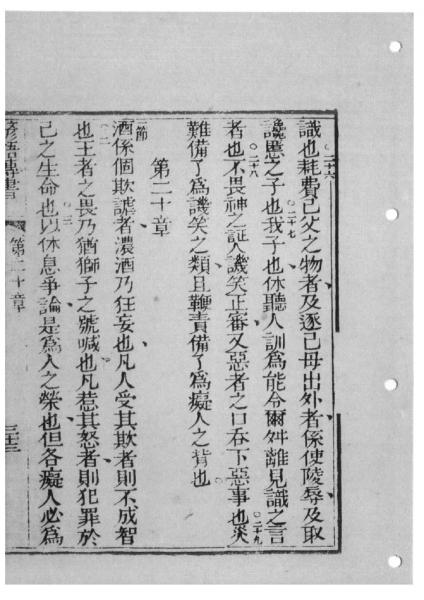 識也○二十六耗費己父之物者及逐己母出外者係使陵辱及取
讒慝之子也○二十七我子也休聽人訓為能令爾舛離見識之言
者也○二十八不畏神之証人譏笑正審又惡者之口吞下惡事也○二十九災
難備了為譏笑之類且鞭責備了為癡人之背也
第二十章
一節酒係個欺謔者濃酒乃狂妄也凡人受其欺者則不成智
也○二王者之畏乃猶獅子之號喊也凡惹其怒者則犯罪於
己之生命也○三以休息爭論是為人之榮也但各癡人必為
第二十章 三十三